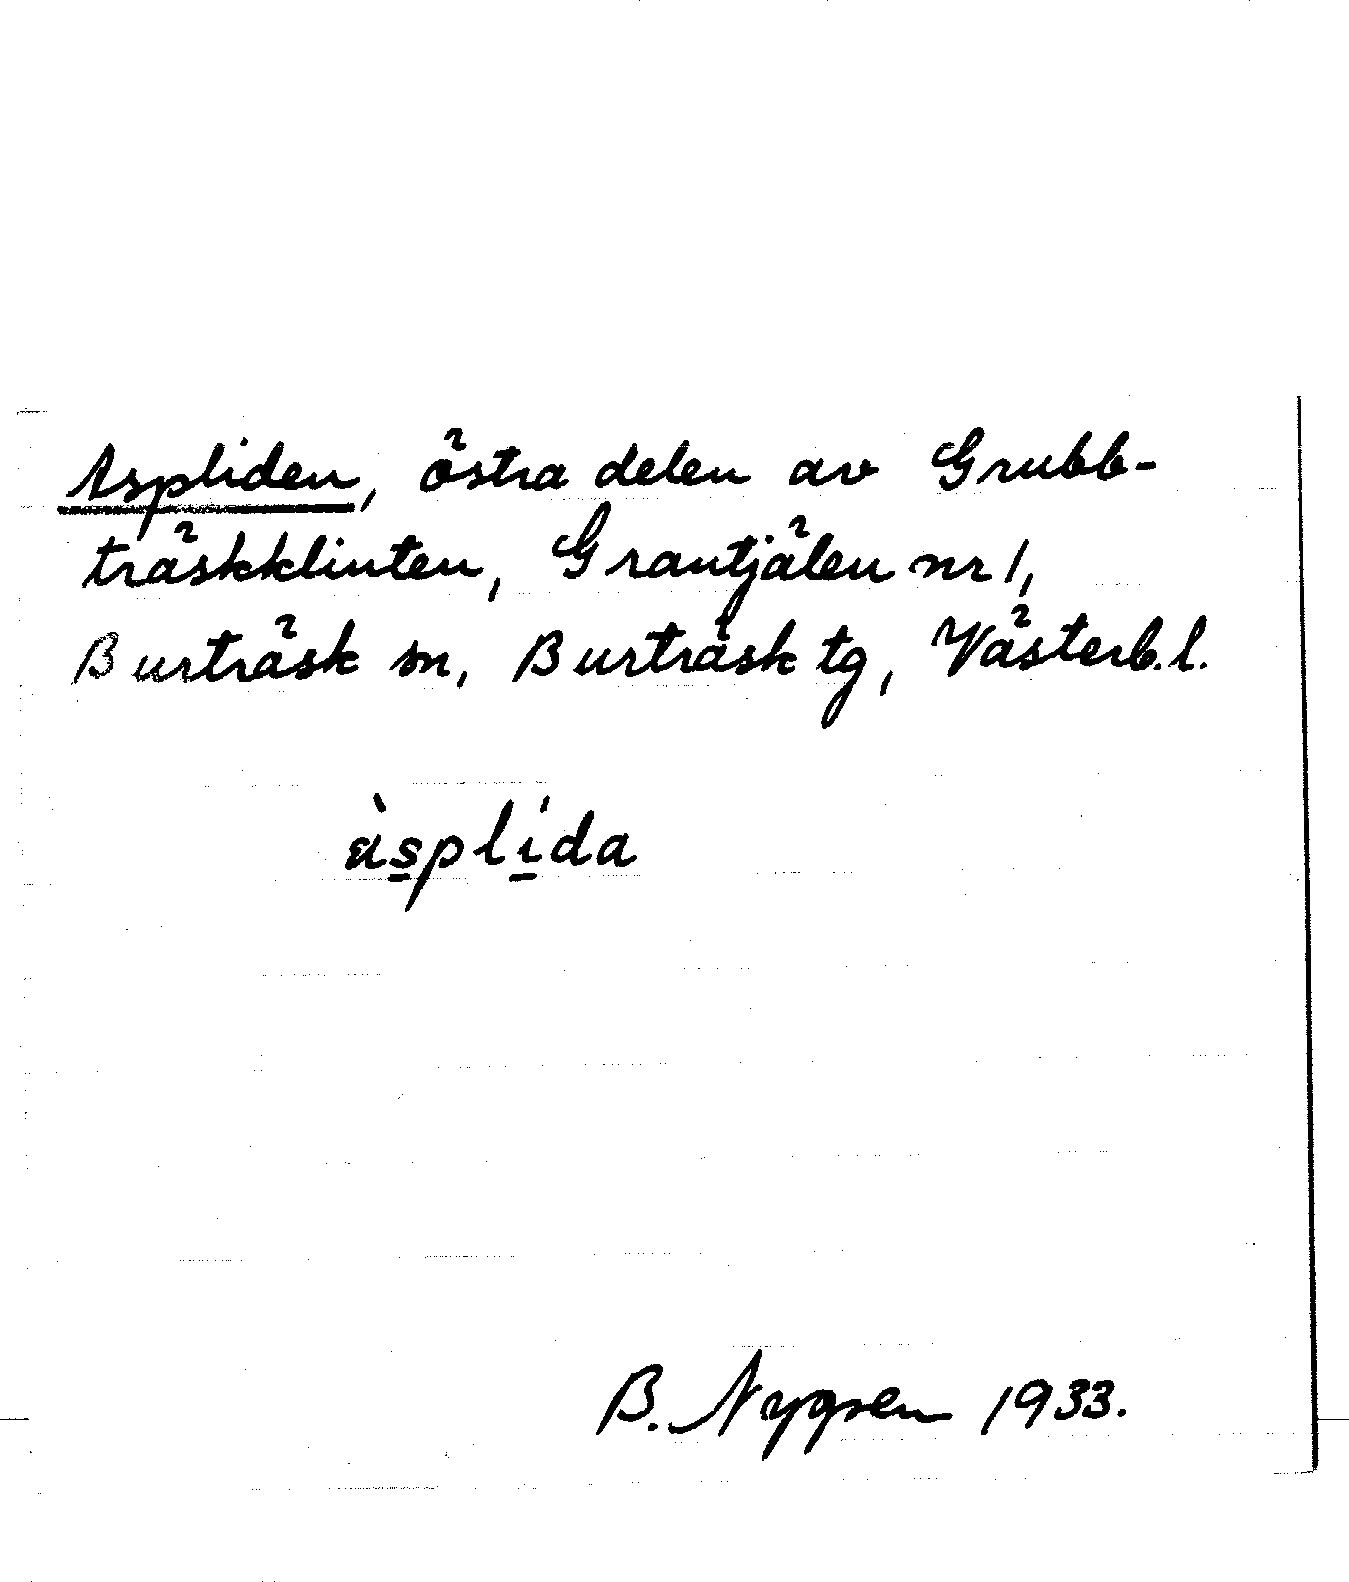 Aspliden, östra delen av Grubb-
träskklinten, Grantjälen nr 1,
Burträsk sn, Burträsk tg, Västerb. l.
àsplída
B. Nygren 1933.